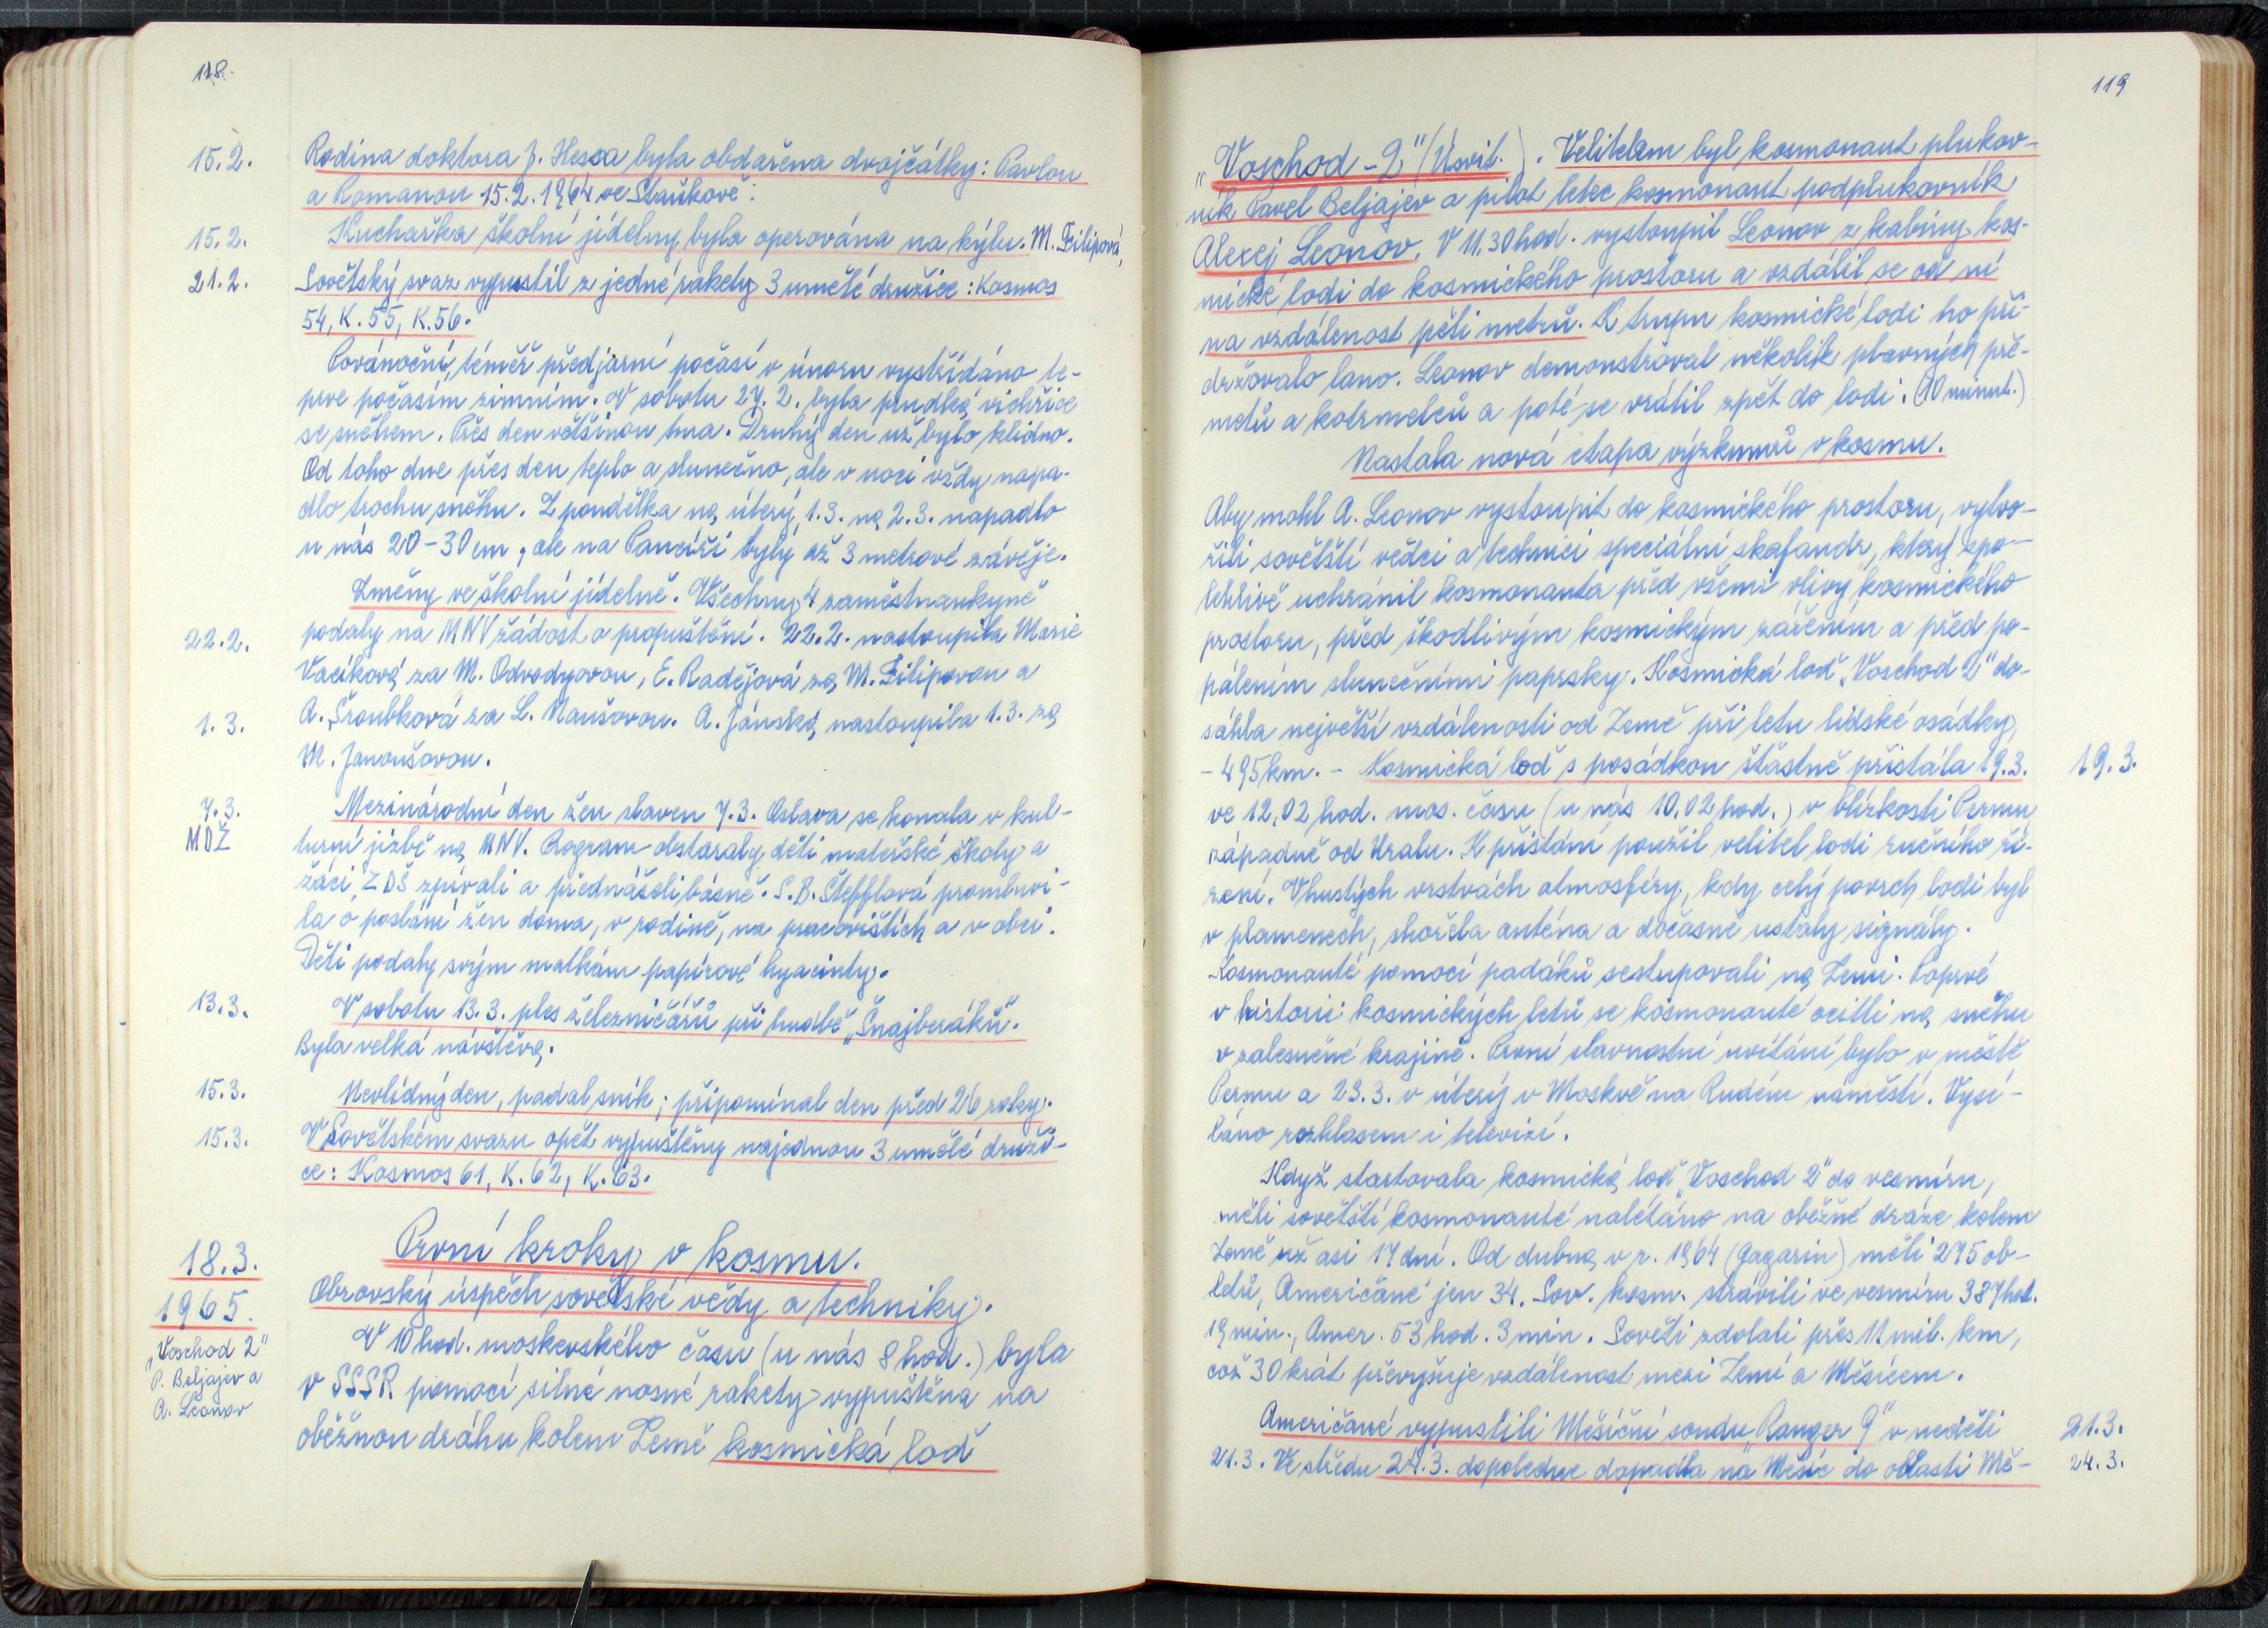 118.
15.2.
Rodina doktora J. Hessa byla obdařena dvojčátky: Pavlou
a Romanou 15.2.1964 ve Staňkově.
15.2.
Kuchařka školní jídelny byla operována na kýlu. M. Filipová,
21.2.
Sovětský svaz vypustil z jedné rakety 3 umělé družice: Kosmos
54, K. 55, K. 56.
Povánoční, téměř předjarní počasí v únoru vystřídáno te-
prve počasím zimním. V sobotu 27. 2. byla prudká vichřice
se sněhem. Přes den většinou tma. Druhý den už bylo klidno.
Od toho dne přes den teplo a slunečno, ale v noci vždy napa-
dlo trochu sněhu. Z pondělka na úterý 1.3. na 2.3. napadlo
u nás 20-30 cm, ale na Pancíři byly až 3 metrové závěje.
Změny ve školní jídelně. Všechny 4 zaměstnankyně
22.2.
podaly na MNV žádost o propuštění. 22.2. nastoupila Marie
Vacíková za M. Odvodyovou, E. Radějová za M. Filipovou a
1.3.
A. Šroubková za L. Naušovou. A. Jánská nastoupila 1.3. za
M. Janoušovou.
7.3.
MDŽ
Mezinárodní den žen slaven 7.3. Oslava se konala v kul-
turní jizbě na MNV. Program obstaraly děti mateřské školy a
žáci ZDŠ zpívali a přednášeli básně. S. B. Štefflová promluvi-
la o poslání žen doma, v rodině, na pracovištích a v obci.
Děti podaly svým matkám papírové hyacinty.
13.3.
V sobotu 13.3. ples železničářů při hudbě „Šnajberáků".
Byla velká návštěva.
15.3.
Nevlídný den, padal sníh; připomínal den před 26 roky.
15.3.
V Sovětském svazu opět vypuštěny najednou 3 umělé druži-
ce: Kosmos 61, K. 62, K. 63.
18.3.
1965.
„Voschod 2"
P. Beljajev a
A. Leonov
První kroky v kosmu.
Obrovský úspěch sovětské vědy a techniky.
V 10 hod. moskevského času (u nás 8 hod.) byla
v SSSR pomocí silné nosné rakety vypuštěna na
oběžnou dráhu kolem Země kosmická loď
119
„Voschod-2" (Úsvit.). Velitelem byl kosmonaut plukov-
ník Pavel Beljajev a pilot letec kosmonaut podplukovník
Alexej Leonov. V 11.30 hod. vystoupil Leonov z kabiny kos-
mické lodi do kosmického prostoru a vzdálil se od ní
na vzdálenost pěti metrů. K trupu kosmické lodi ho při-
držovalo lano. Leonov demonstroval několik plavných pře-
metů a kotrmelců a poté se vrátil zpět do lodi. (10 minut.)
Nastala nová etapa výzkumů v kosmu.
Aby mohl A. Leonov vystoupit do kosmického prostoru, vytvo-
řili sovětští vědci a technici speciální skafandr, který spo-
lehlivě uchránil kosmonauta před všemi vlivy kosmického
prostoru, před škodlivým kosmickým zářením a před po-
pálením slunečními paprsky. Kosmická loď „Voschod 2" do-
sáhla největší vzdálenosti od Země při letu lidské osádky,
- 495 km. - Kosmická loď s posádkou šťastně přistála 19.3.
19.3.
ve 12.02 hod. mos. času (u nás 10.02 hod.) v blízkosti Permu
západně od Uralu. K přistání použil velitel lodi ručního ří-
zení. V hustých vrstvách atmosféry, kdy celý povrch lodi byl
v plamenech, shořela anténa a dočasně ustaly signály.
Kosmonauté pomocí padáků sestupovali na Zemi. Poprvé
v historii kosmických letů se kosmonauté ocitli na sněhu
v zalesněné krajině. První slavnostní uvítání bylo v městě
Permu a 23.3. v úterý v Moskvě na Rudém náměstí. Vysí-
láno rozhlasem i televizí.
Když startovala kosmická loď „Voschod 2" do vesmíru,
měli sovětští kosmonauté nalétáno na oběžné dráze kolem
Země už asi 17 dní. Od dubna v r. 1964 (Gagarin) měli 275 ob-
letů, Američané jen 34. Sov. kosm. strávili ve vesmíru 387 hod.
19 min., Amer. 53 hod. 3 min. Sověti zdolali přes 11 mil. km,
což 30 krát převyšuje vzdálenost mezi Zemí a Měsícem.
Američané vypustili Měsíční sondu „Ranger 9" v neděli
21.3.
21.3. Ve středu 24.3. dopoledne dopadla na Měsíc do oblasti Mě-
24.3.